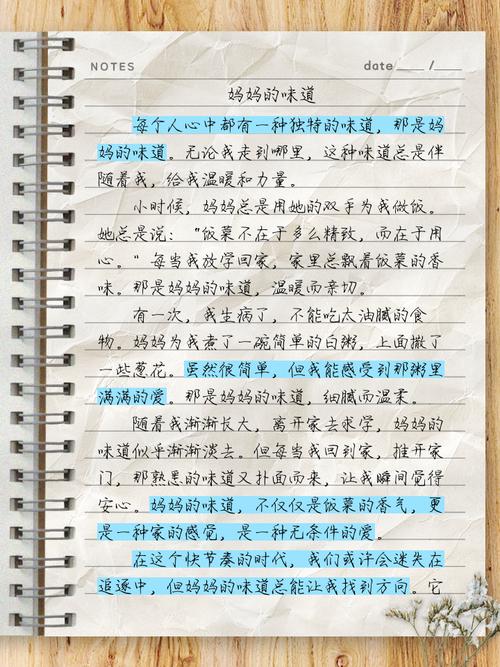 NOTES
date ____ / ____
妈妈的味道
每个人心中都有一种独特的味道，那是妈
妈的味道。无论我走到哪里，这种味道总是伴
随着我，给我温暖和力量。
小时候，妈妈总是用她的双手为我做饭。
她总是说："饭菜不在于多么精致，而在于用
心。"每当我放学回家，家里总飘着饭菜的香
味。那是妈妈的味道，温暖而亲切。
有一次，我生病了，不能吃太油腻的食
物。妈妈为我煮了一碗简单的白粥，上面撒了
一些葱花。虽然很简单，但我能感受到那粥里
满满的爱。那是妈妈的味道，细腻而温柔。
随着我渐渐长大，离开家去求学，妈妈的
味道似乎渐渐淡去。但每当我回到家，推开家
门，那熟悉的味道又扑面而来，让我瞬间觉得
安心。妈妈的味道，不仅仅是饭菜的香气，更
是一种家的感觉，是一种无条件的爱。
在这个快节奏的时代，我们或许会迷失在
追逐中，但妈妈的味道总能让我找到方向。它